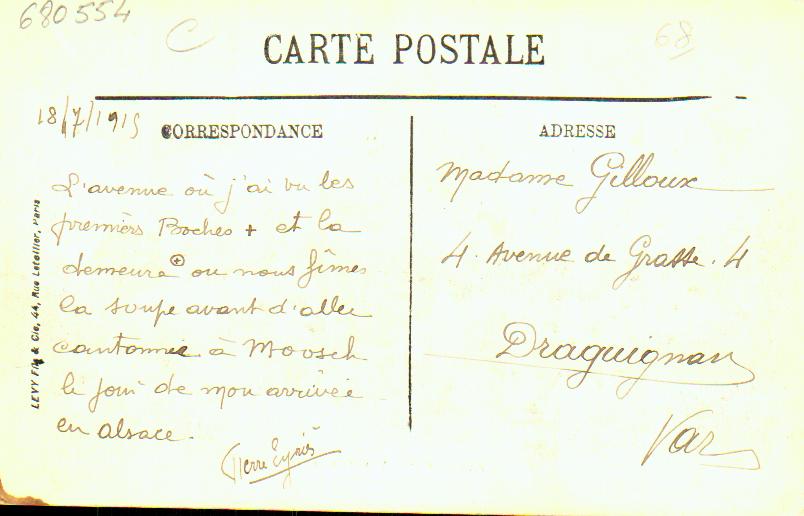 680554
C
68
CARTE POSTALE
18/7/1915
CORRESPONDANCE
L'avenue où j'ai vu les
premiers Boches + et la
demeure ⊕ ou nous fîmes
la soupe avant d'aller
cantonner à Moosch
le jour de mon arrivée
en alsace.
Pierre Eyriès
ADRESSE
Madame Gilloux
4. Avenue de Grasse. 4
Draguignan
Var
LEVY Fils & Cie, 44, Rue Letellier, Paris